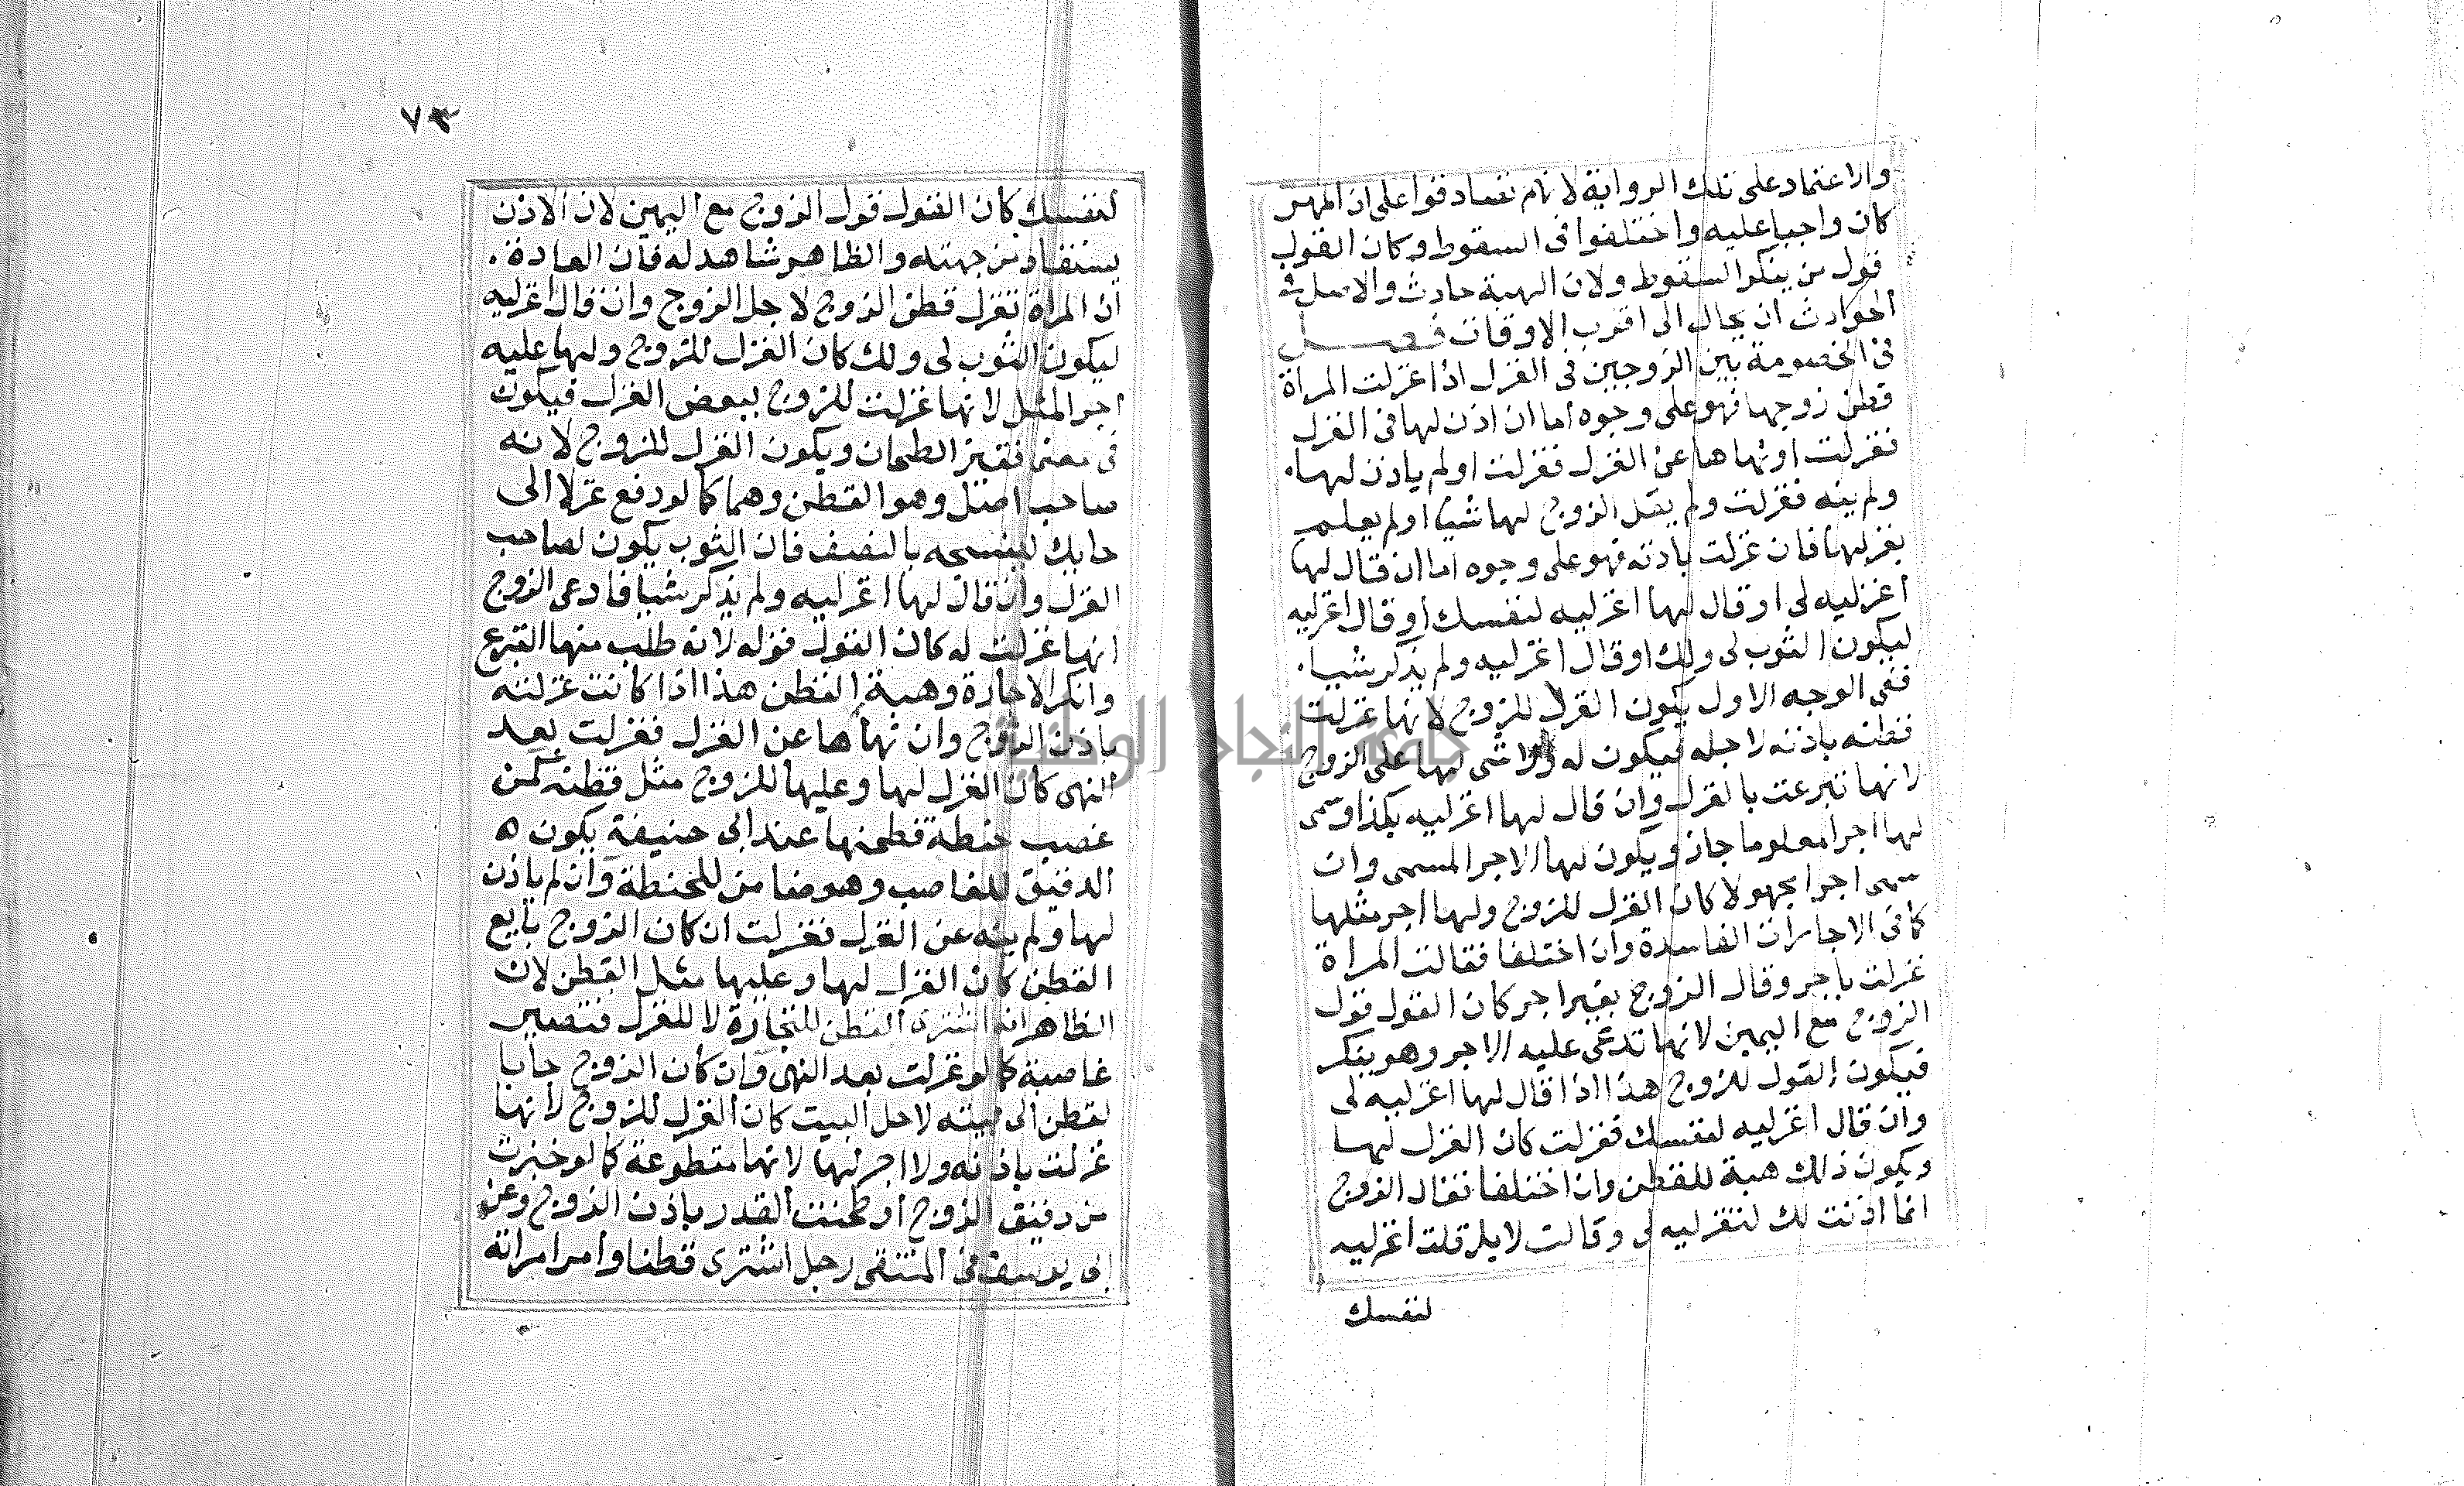 والاعتماد على تلك الرواية لانهم تصادقوا على ان المهر
كان واجبا عليه واختلفوا فى السقوط وكان القول
قول من ينكر السقوط ولان الهبة حادث والاصل فى
الحوادث ان يحال الى اقرب الاوقات فصل
فى الخصومة بين الزوجين فى الغزل اذا غزلت المراة
قطن زوجها فهو على وجوه اما ان اذن لها فى الغزل
فغزلت او نهاها عن الغزل فغزلت او لم ياذن لها
ولم ينه فغزلت ولم يقل الزوج لها شيا او لم يعلم
بغزلها فان غزلت باذنه فهو على وجوه اما ان قال لها
اغزليه لى او قال لها اغزليه لنفسك او قال اغزليه
ليكون الثوب لى ولك او قال اغزليه ولم يذكر شيا
ففى الوجه الاول يكون الغزل للزوج لانها غزلت
قطنه باذنه لاجله فيكون له ولا شى لها على الزوج
لانها تبرعت بالغزل وان قال لها اغزليه بكذا وسمى
لها اجرا معلوما جاز ويكون لها الاجر المسمى وان
سمى اجرا مجهولا كان الغزل للزوج ولها اجر مثلها
كما فى الاجارات الفاسدة وان اختلفا فقالت المراة
غزلت باجر وقال الزوج بغير اجر كان القول قول
الزوج مع اليمين لانها تدعى عليه الاجر وهو ينكر
فيكون القول للزوج هذا اذا قال لها اغزليه لى
وان قال اغزليه لنفسك فغزلت كان الغزل لها
ويكون ذلك هبة للقطن وان اختلفا فقال الزوج
انما اذنت لك لتغزليه لى وقالت لا بل قلت اغزليه
لنفسك
٧٣
لنفسك كان القول قول الزوج مع اليمين لان الاذن
يستفاد من جهته والظاهر شاهد له فان العادة
ان المراة تغزل قطن الزوج لاجل الزوج وان قال اغزليه
ليكون الثوب لى ولك كان الغزل للزوج ولها عليه
اجر المثل لانها غزلت للزوج ببعض الغزل فيكون
فى معنى قفيز الطحان ويكون الغزل للزوج لانه
صاحب اصل وهو القطن وهما كما لو دفع غزلا الى
حايك لينسجه بالنصف فان الثوب يكون لصاحب
الغزل وان قال لها اغزليه ولم يذكر شيا فادعى الزوج
انها غزلت له كان القول قوله لانه طلب منها التبرع
وانكر الاجارة وهبة القطن هذا اذا كانت غزلته
باذن الزوج وان نهاها عن الغزل فغزلت بعد
النهى كان الغزل لها وعليها للزوج مثل قطنه كمن
غصب حنطة فطحنها عند ابى حنيفة يكون ه
الدقيق للغاصب وهو ضامن للحنطة وان لم ياذن
لها ولم ينه عن الغزل فغزلت ان كان الزوج بايع
القطن كان الغزل لها وعليها مثل القطن لان
الظاهر انه اشترى القطن للتجارة لا للغزل فتصير
غاصبة كما لو غزلت بعد النهى وان كان الزوج جايا
لقطن الى بيته لاجل البيت كان الغزل للزوج لانها
غزلت باذنه ولا اجر لها لانها متطوعة كما لو خبزت
من دقيق الزوج او طبخت القدر باذن الزوج وعن
ابى يوسف فى المنتقى رجل اشترى قطنا وامر امراته
جامعة النجاح الوطنية